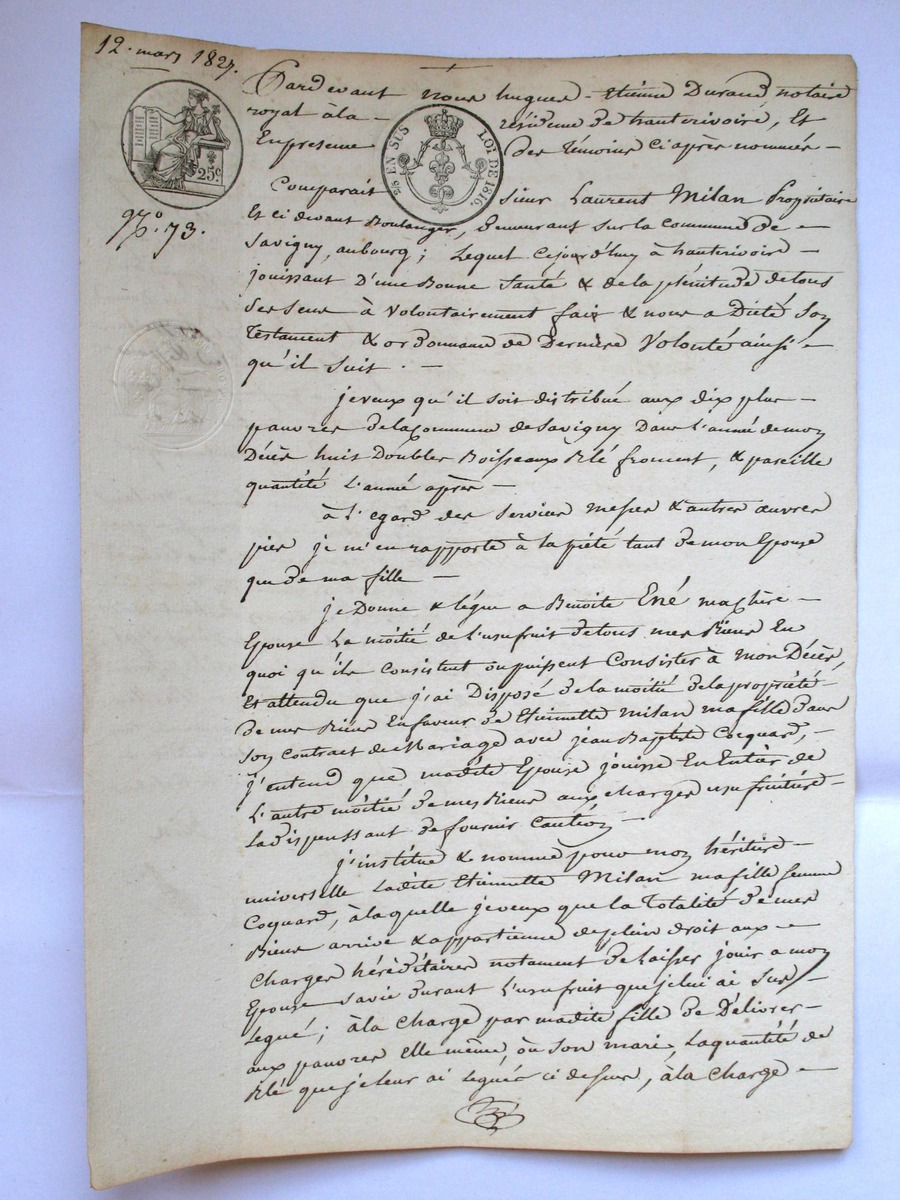 12. mars 1827.
Pardevant nous hugues-Etienne Durand notaire
royal à la résidence de hauterivoire, Et
En presence des témoins ci après nommés
25c
EN SUS LOI DE 1816.
No. 73.
Comparait sieur Laurent Milan Propriétaire
Et ci devant Boulanger, demeurant sur la commune de
Savigny, au bourg; Lequel cejourd'huy à hauterivoire
jouissant d'une Bonne Santé & de la plénitude de tous
ses sens à volontairement fait & nous a Dicté son
testament & ordonnance de Dernière Volonté ainsi
qu'il suit.
je veux qu'il soit distribué aux dix plus
pauvres de la commune de Savigny Dans l'année de mon
Décès huit Doubles Boisseaux Blé froment, & pareille
quantité L'année après
à l'egard des services messes & autres œuvres
pies je m'en rapporte à la piété tant de mon Epouse
que de ma fille
je Donne & légue a Benoite Ené ma chère
Epouse La moitié de L'usufruit de tous mes Biens En
quoi qu'ils consistent ou puissent Consister à mon Décès,
Et attendu que j'ai Disposé de la moitié de la propriété
de mes Biens En faveur de Etiennette Milan ma fille dans
son contract de Mariage avec jean Baptiste Cocquard,
j'entend que madite Epouse jouisse En Entier de
L'autre moitié de mes Biens aux charges usufruitière
La dispenssant de fournir Caution
j'institue & nomme pour mon héritière
universelle Ladite Etiennette Milan ma fille femme
Cocquard, à laquelle je veux que la totalité de mes
Biens arrive & appartienne de plein droit aux
Charges héréditaires notament de Laisser jouir a mon
Epouse sa vie durant L'usufruit que je lui ai Sus
Legué; à la charge par madite fille de Délivrer
aux pauvres Elle même, ou son mari, La quantité de
Blé que je leur ai Legués ci dessus, à la charge